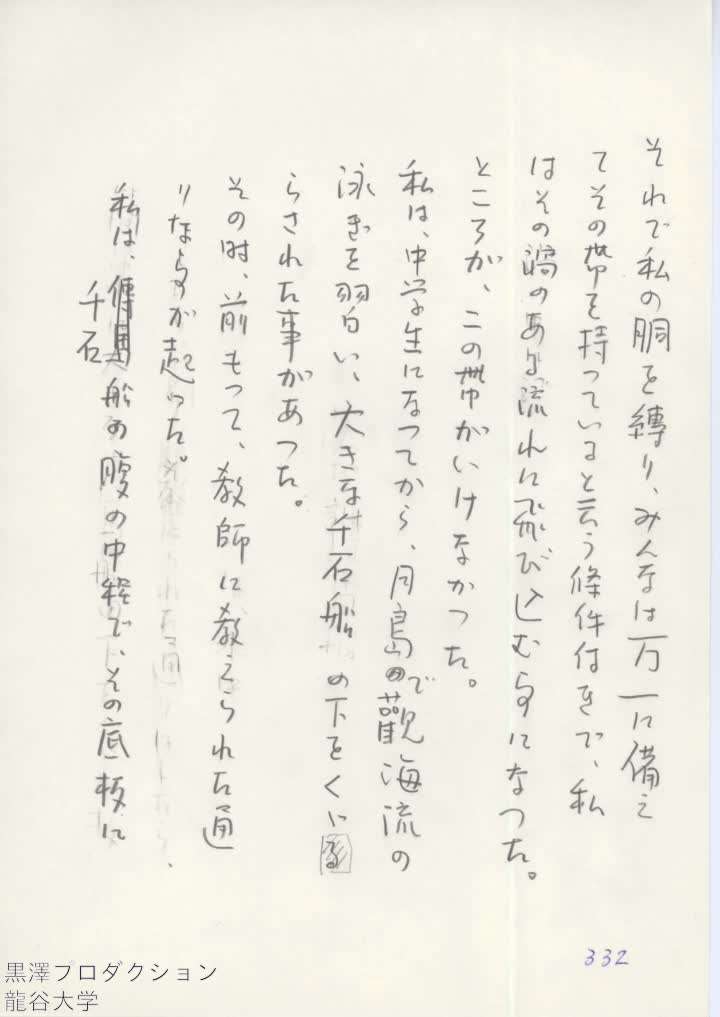 それで私の胴を縛り、みんなは万一に備え
てその帯を持っていると云う條件付きで、私
はその渦のある流れに飛び込む事になった。
ところが、この帯がいけなかった。
私は、中学生になってから、月島で観海流の
泳ぎを習い、大きな千石船の下をくゞ
らされた事があった。
その時、前もって、教師に教えられた通
りなら事が起った。
私は、千石船の腹の中程で、その底板に
332
黒澤プロダクション
龍谷大学